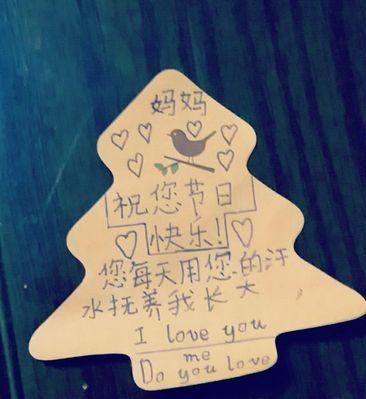 妈妈
祝您节日
快乐!
您每天用您的汗
水抚养我长大
I love you
me
Do you love